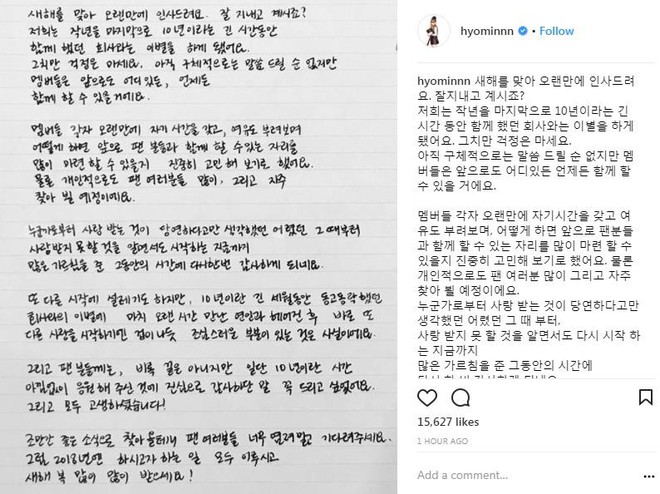 새해를 맞아 오랜만에 인사드려요. 잘 지내고 계시죠?
저희는 작년을 마지막으로 10년이라는 긴 시간동안
함께 했던 회사와는 이별을 하게 됐어요.
그치만 걱정은 마세요. 아직 구체적으로는 말씀 드릴 순 없지만
멤버들은 앞으로도 어디있든, 언제든
함께 할 수 있을거에요.
멤버들 각자 오랜만에 자기 시간을 갖고, 여유도 부려보며
어떻게 하면 앞으로 팬 분들과 함께 할 수 있는 자리를
많이 마련할 수 있을지 진중히 고민 해 보기로 했어요.
물론 개인적으로도 팬 여러분들 많이, 그리고 자주
찾아 뵐 예정이에요.
누군가로부터 사랑 받는 것이 당연하다고만 생각했던 어렸던 그 때부터
사랑받지 못 할 것을 알면서도 시작하는 지금까지
많은 가르침을 준 그동안의 시간에 다시한번 감사하게 되네요.
또 다른 시작에 설레기도 하지만, 10년이란 긴 세월동안 동고동락했던
회사와의 이별에 마치 오랜 시간 만난 연인과 헤어진 후 바로 또
다른 사랑을 시작하기엔 겁이 나듯 조심스러운 부분이 있는 것은 사실이에요.
그리고 팬 분들께는, 비록 끝은 아니지만 일단 10년이란 시간
아낌없이 응원해 주신 것에 진심으로 감사하단 말 꼭 드리고 싶었어요.
그리고 모두 고생하셨습니다!
조만간 좋은 소식으로 찾아 올테니 팬 여러분들 너무 염려말고 기다려주세요.
그럼 2018년엔 하시고자 하는 일 모두 이루시고
새해 복 많이 많이 받으세요!
hyominnn • Follow
hyominnn 새해를 맞아 오랜만에 인사드려
요. 잘지내고 계시죠?
저희는 작년을 마지막으로 10년이라는 긴
시간 동안 함께 했던 회사와는 이별을 하게
됐어요. 그치만 걱정은 마세요.
아직 구체적으로는 말씀 드릴 순 없지만 멤
버들은 앞으로도 어디있든 언제든 함께 할
수 있을 거에요.
멤버들 각자 오랜만에 자기시간을 갖고 여
유도 부려보며, 어떻게 하면 앞으로 팬분들
과 함께 할 수 있는 자리를 많이 마련할 수
있을지 진중히 고민해 보기로 했어요. 물론
개인적으로도 팬 여러분 많이 그리고 자주
찾아 뵐 예정이에요.
누군가로부터 사랑 받는 것이 당연하다고만
생각했던 어렸던 그 때 부터.
사랑 받지 못 할 것을 알면서도 다시 시작 하
는 지금까지
많은 가르침을 준 그동안의 시간에
15,627 likes
1 HOUR AGO
Add a comment...